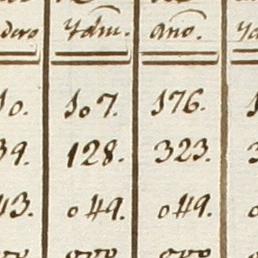 dero Ydm. año.
10. 107. 176.
39. 128. 323.
43. 049. 049.